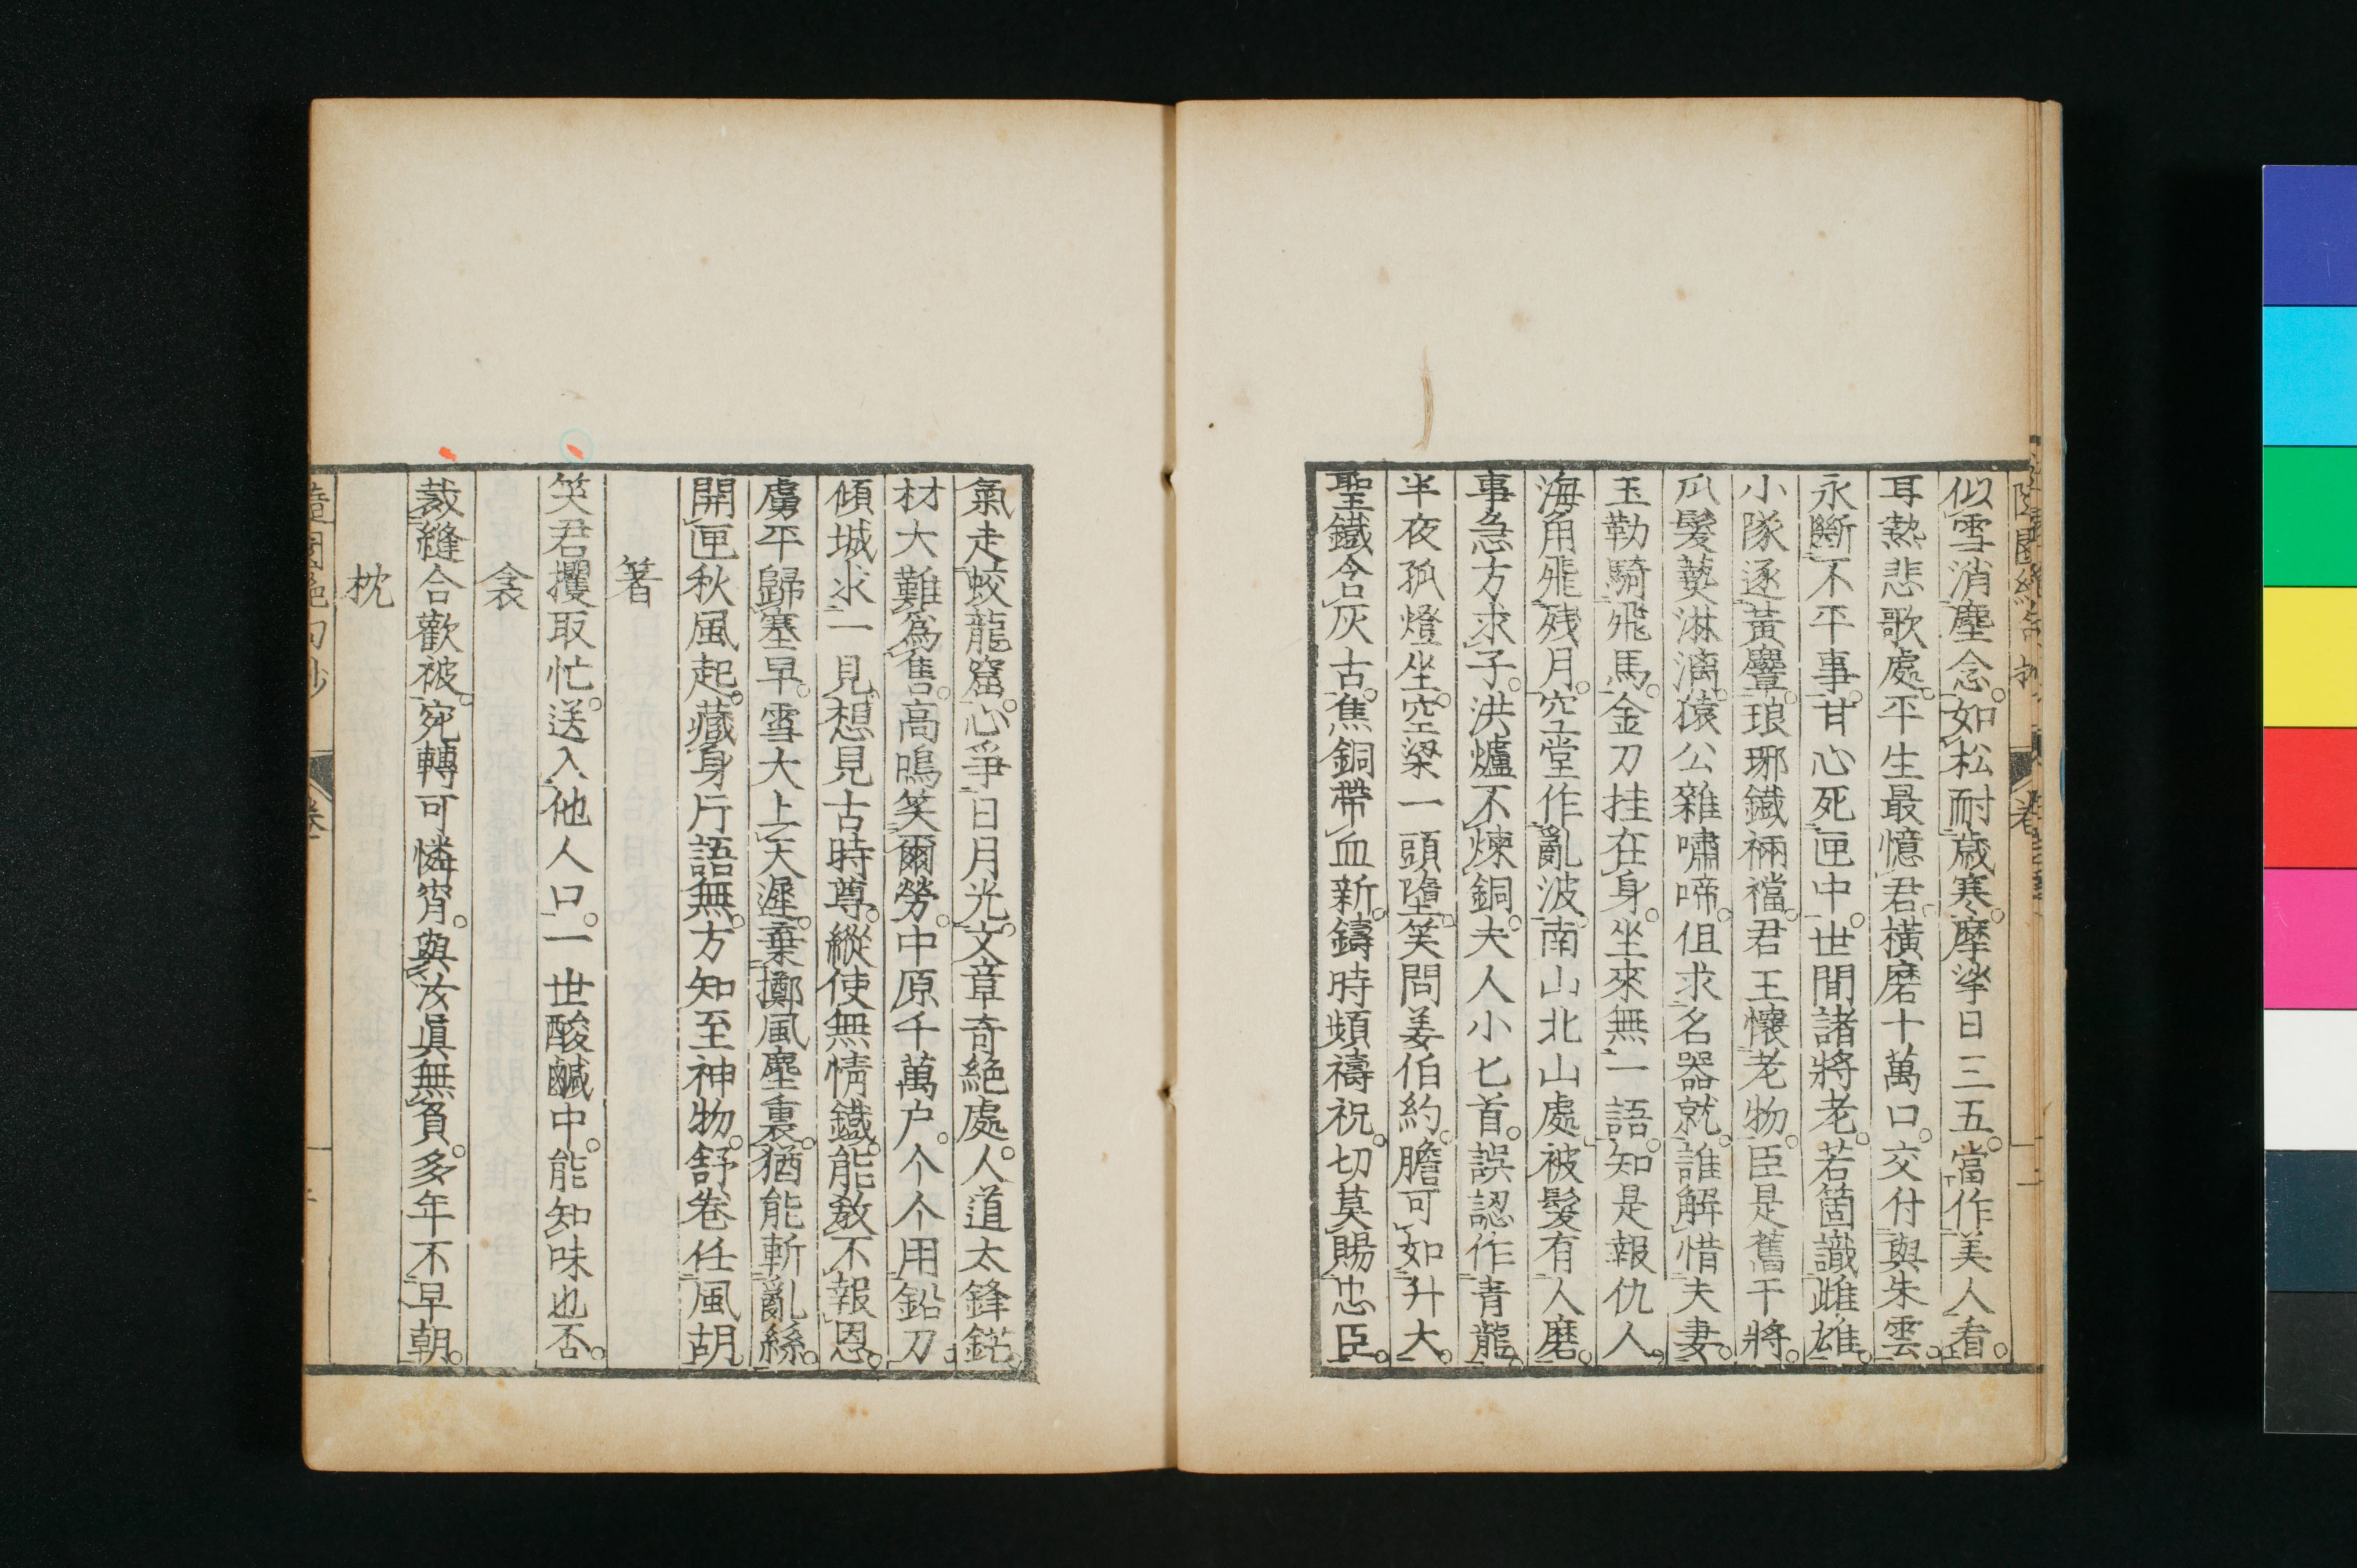 似雪消塵念。如松耐歲寒。摩挲日三五。當作美人看。
耳熱悲歌處。平生最憶君。橫磨十萬口。交付與朱雲。
永斷不平事。甘心死匣中。世間諸將老。若箇識雌雄。
小隊逐黃麞。琅琊鐵裲襠。君王懷老物。臣是舊干將。
爪髮爇淋漓。猿公雜嘯啼。但求名器就。誰解惜夫妻。
玉勒騎飛馬。金刀挂在身。坐來無一語。知是報仇人。
海角飛殘月。空堂作亂波。南山北山處。被髮有人磨。
事急方求子。洪爐不煉銅。夫人小匕首。誤認作青龍。
半夜孤燈坐。空梁一頭墮。笑問姜伯約。膽可如升大。
聖鐵含灰古。焦銅帶血新。鑄時頻禱祝。切莫賜忠臣。
氣走蛟龍窟。心爭日月光。文章奇絕處。人道太鋒鋩。
材大難為售。高鳴笑爾勞。中原千萬户。个个用鉛刀。
傾城求一見。想見古時尊。縱使無情鐵。能教不報恩。
虜平歸塞早。雪大上天遲。棄擲風塵裏。猶能斬亂絲。
開匣秋風起。藏身片語無。方知至神物。舒卷任風胡
箸
笑君攫取忙。送入他人口。一世酸鹹中。能知味也否。
衾
裁縫合歡被。宛轉可憐宵。與汝眞無負。多年不早朝。
枕
隨園絕句抄
卷